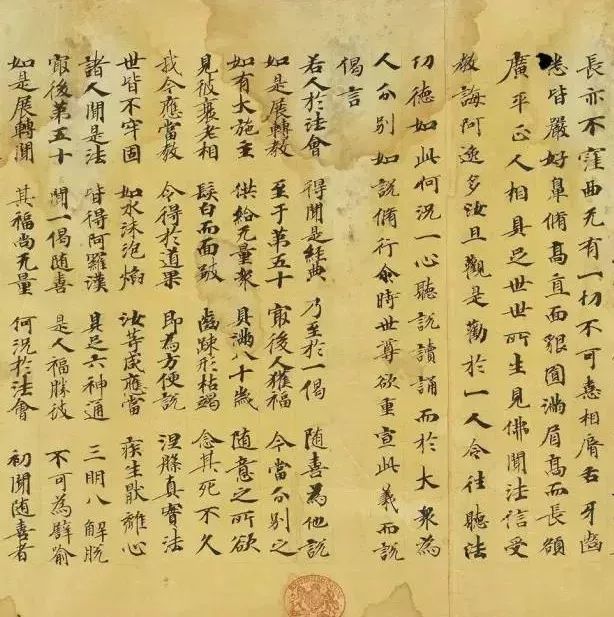 長亦不窪曲无有一切不可憙相脣舌牙齒
悉皆嚴好鼻脩高直面貌圓滿眉高而長額
廣平正人相具足世世所生見佛聞法信受
教誨阿逸多汝且觀是勸於一人令往聽法
功德如此何況一心聽說讀誦而於大衆為
人分別如說脩行尒時世尊欲重宣此義而說
偈言
若人於法會 得聞是經典 乃至於一偈 隨喜為他說
如是展轉教 至于第五十 冣後人獲福 今當分別之
如有大施主 供給无量衆 具滿八十歲 隨意之所欲
見彼衰老相 髮白而面皺 齒踈形枯竭 念其死不久
我今應當教 令得於道果 即為方便說 涅槃真實法
世皆不牢固 如水沫泡焰 汝等咸應當 疾生猒離心
諸人聞是法 皆得阿羅漢 具足六神通 三明八解脫
冣後第五十 聞一偈隨喜 是人福勝彼 不可為譬喻
如是展轉聞 其福尚无量 何況於法會 初聞隨喜者